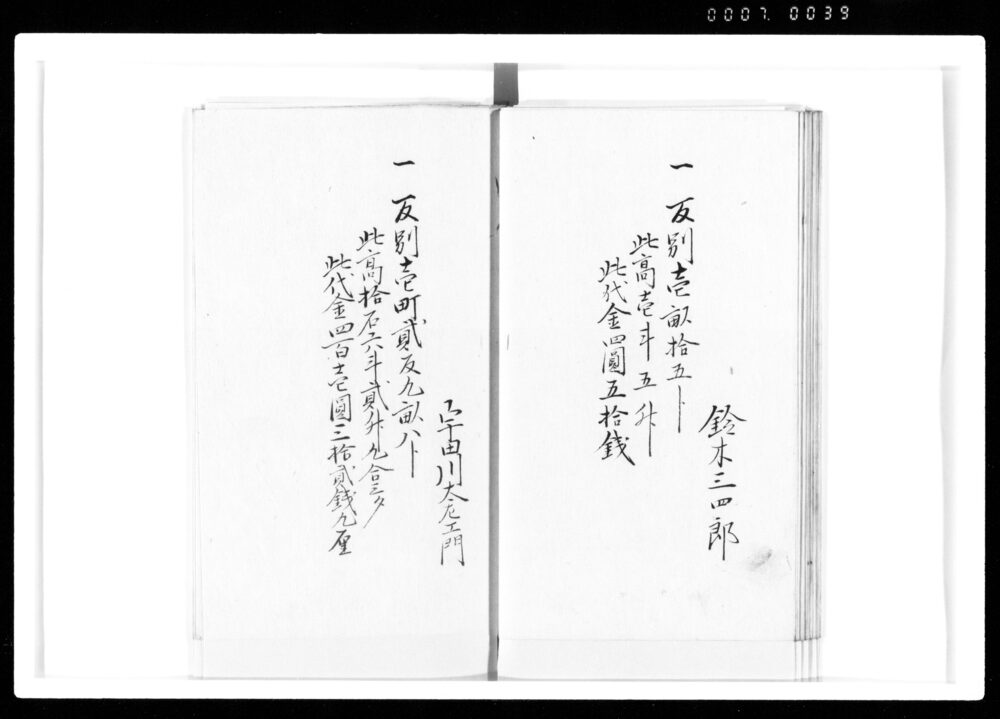 0007 0039
鈴木三四郎
一反別壱畝拾五卜
此高壱斗五升
此代金四圓五拾銭
宇田川太左エ門
一反別壱町貳反九畝八卜
此高拾石六斗貳升九合三夕
此代金四百壱圓三拾貳銭九厘